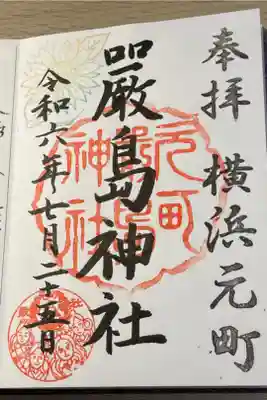 奉拝 横浜元町
嚴島神社
令和六年七月二十五日
元町
嶋
神社